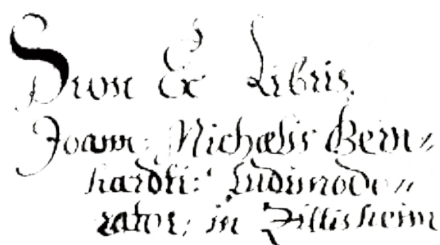 Sum Ex Libris.
Joann: Michaelis Bern=
hardti: Ludimode=
rator: in Zillisheim